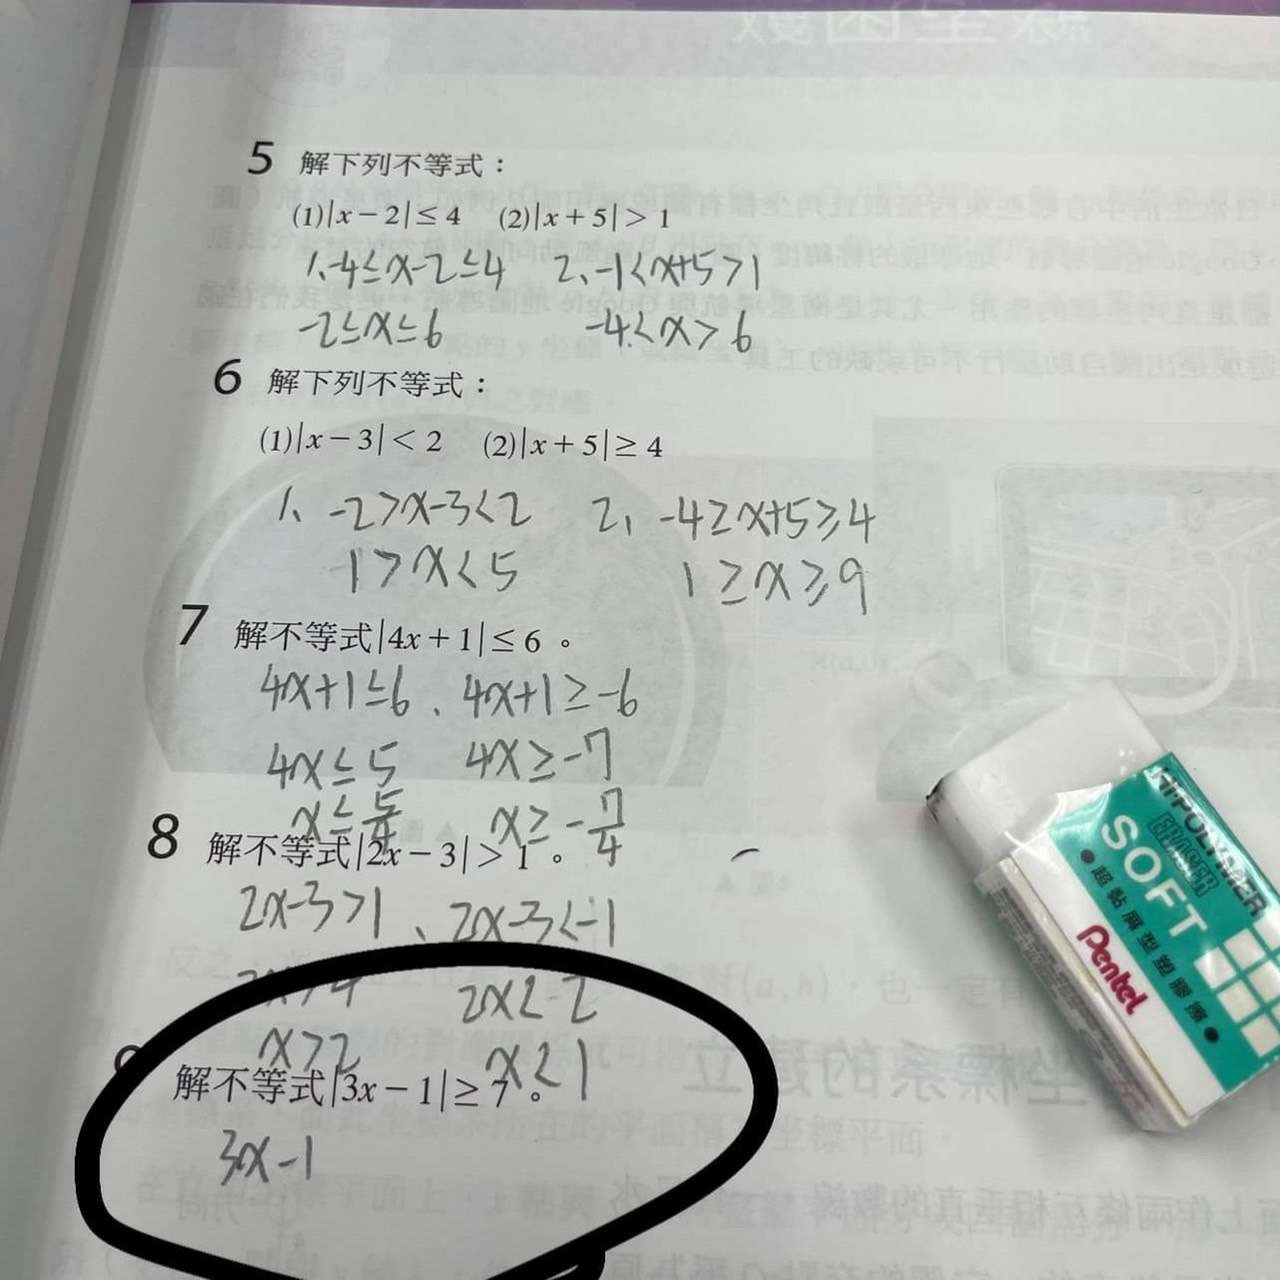 5 解下列不等式：
(1)|x－2|≤4 (2)|x＋5|>1
1、-4≤x-2≤4 2、-1<x+5>1
-2≤x≤6 -4<x>6
6 解下列不等式：
(1)|x－3|<2 (2)|x＋5|≥4
1、-2>x-3<2 2、-4≥x+5≥4
1>x<5 1≥x≥9
7 解不等式|4x＋1|≤6。
4x+1≤6、4x+1≥-6
4x≤5 4x≥-7
x≤5/4 x≥-7/4
8 解不等式|2x－3|>1。
2x-3>1、2x-3<-1
2x>4 2x<2
x>2 x<1
解不等式|3x－1|≥7。
3x-1
HI-POLYMER
ERASER
SOFT
●超黏屑型塑膠擦●
Pentel